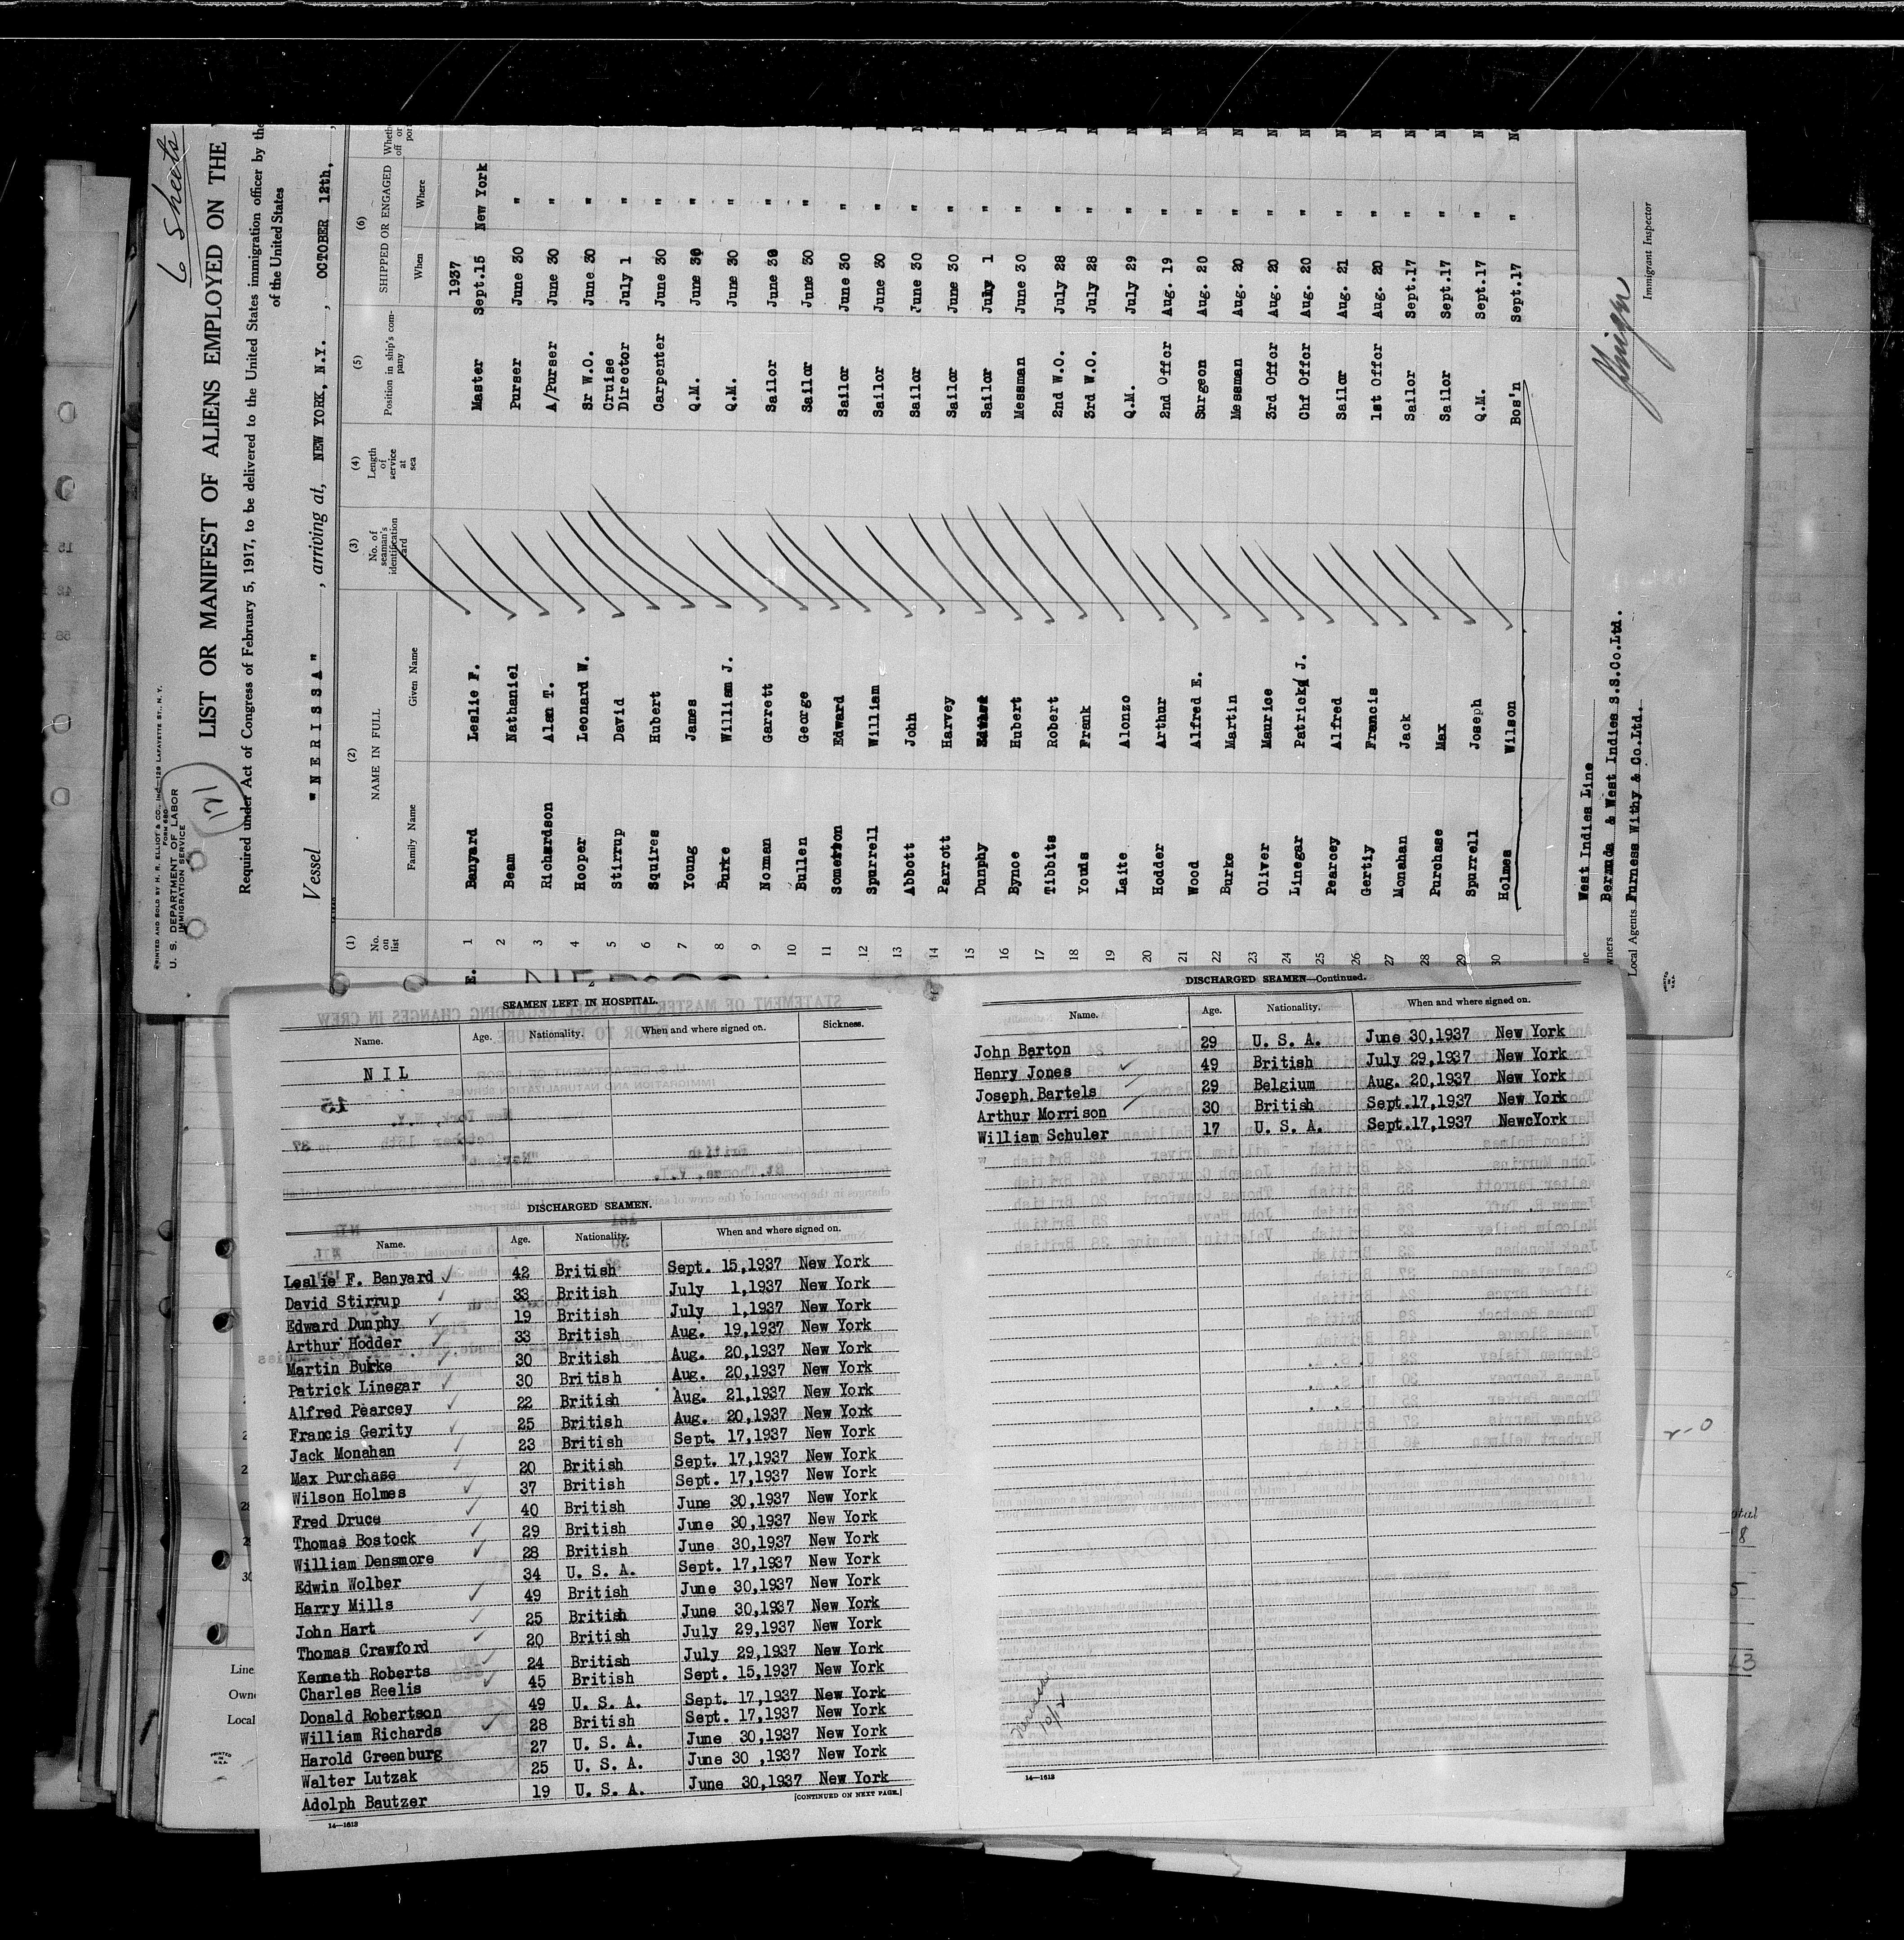 6 Sheets
PRINTED AND SOLD BY H. R. ELLIOT & CO., INC.—129 LAFAYETTE ST., N. Y.
FORM 680
U. S. DEPARTMENT OF LABOR
IMMIGRATION SERVICE
LIST OR MANIFEST OF ALIENS EMPLOYED ON THE
Required under Act of Congress of February 5, 1917, to be delivered to the United States immigration officer by the
of the United States
Vessel "NERISSA", arriving at, NEW YORK, N.Y., OCTOBER 12th,
(1) (2) (3) (4) (5) (6)
No. on list NAME IN FULL No. of seaman's identification card Length of service at sea Position in ship's company SHIPPED OR ENGAGED
Family Name Given Name When Where
1937
1 Banyard Leslie F. Master Sept.15 New York
2 Beam Nathaniel Purser June 30 "
3 Richardson Alan T. A/Purser June 30 "
4 Hooper Leonard W. Sr W.O. June 30 "
5 Stirrup David Cruise Director July 1 "
6 Squires Hubert Carpenter June 30 "
7 Young James Q.M. June 30 "
8 Burke William J. Q.M. June 30 "
9 Norman Garrett Sailor June 30 "
10 Bullen George Sailor June 30 "
11 Somerton Edward Sailor June 30 "
12 Spurrell William Sailor June 30 "
13 Abbott John Sailor June 30 "
14 Parrott Harvey Sailor June 30 "
15 Dunphy Sailor July 1 "
16 Bynoe Hubert Messman June 30 "
17 Tibbits Robert 2nd W.O. July 28 "
18 Youds Frank 3rd W.O. July 28 "
19 Laite Alonzo Q.M. July 29 "
20 Hodder Arthur 2nd Offcr Aug. 19 "
21 Wood Alfred E. Surgeon Aug. 20 "
22 Burke Martin Messman Aug. 20 "
23 Oliver Maurice 3rd Offcr Aug. 20 "
24 Linegar Patrick J. Chf Offcr Aug. 20 "
25 Pearcey Alfred Sailor Aug. 21 "
26 Gertiy Francis 1st Offcr Aug. 20 "
27 Monahan Jack Sailor Sept.17 "
28 Purchase Max Sailor Sept.17 "
29 Spurrell Joseph Q.M. Sept.17 "
30 Holmes Wilson Bos'n Sept.17 "
West Indies Line
Bermuda & West Indies S.S.Co.Ltd.
Local Agents Furness Withy & Co.Ltd.
Immigrant Inspector
PRINTED IN U.S.A.
SEAMEN LEFT IN HOSPITAL.
Name. Age. Nationality. When and where signed on. Sickness.
N I L
DISCHARGED SEAMEN.
Name. Age. Nationality. When and where signed on.
Leslie F. Banyard 42 British Sept. 15,1937 New York
David Stirrup 33 British July 1,1937 New York
Edward Dunphy 19 British July 1,1937 New York
Arthur Hodder 33 British Aug. 19,1937 New York
Martin Burke 30 British Aug. 20,1937 New York
Patrick Linegar 30 British Aug. 20,1937 New York
Alfred Pearcey 22 British Aug. 21,1937 New York
Francis Gerity 25 British Aug. 20,1937 New York
Jack Monahan 23 British Sept. 17,1937 New York
Max Purchase 20 British Sept. 17,1937 New York
Wilson Holmes 37 British Sept. 17,1937 New York
Fred Druce 40 British June 30,1937 New York
Thomas Bostock 29 British June 30,1937 New York
William Densmore 28 British June 30,1937 New York
Edwin Wolber 34 U. S. A. Sept. 17,1937 New York
Harry Mills 49 British June 30,1937 New York
John Hart 25 British June 30,1937 New York
Thomas Crawford 20 British July 29,1937 New York
Kenneth Roberts 24 British July 29,1937 New York
Charles Reelis 45 British Sept. 15,1937 New York
Donald Robertson 49 U. S. A. Sept. 17,1937 New York
William Richards 28 British Sept. 17,1937 New York
Harold Greenburg 27 U. S. A. June 30,1937 New York
Walter Lutzak 25 U. S. A. June 30 ,1937 New York
Adolph Bautzer 19 U. S. A. June 30,1937 New York
[CONTINUED ON NEXT PAGE.]
14—1613
DISCHARGED SEAMEN—Continued.
Name. Age. Nationality. When and where signed on.
John Barton 29 U. S. A. June 30,1937 New York
Henry Jones 49 British July 29,1937 New York
Joseph.Bartels 29 Belgium Aug. 20,1937 New York
Arthur Morrison 30 British Sept.17,1937 New York
William Schuler 17 U. S. A. Sept.17,1937 NewcYork
Nerissa
10/12
14—1613
Line
Local
PRINTED IN U.S.A.